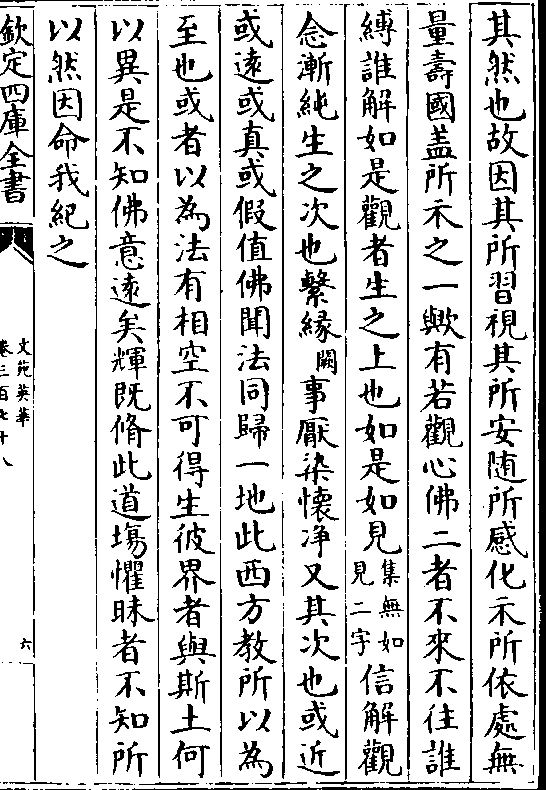 其然也故因其所習視其所安随所感化示所依處無
量壽國盖所示之一歟有若觀心佛二者不來不往誰
縛誰解如是觀者生之上也如是如見集無如見二字信解觀
念漸純生之次也繫緣闕事厭染懷净又其次也或近
或遠或真或假值佛聞法同歸一地此西方教所以為
至也或者以為法有相空不可得生彼界者與斯土何
以異是不知佛意遠矣輝既脩此道場懼昧者不知所
以然因命我紀之
欽定四庫全書
文苑英華
卷三百七十八
六